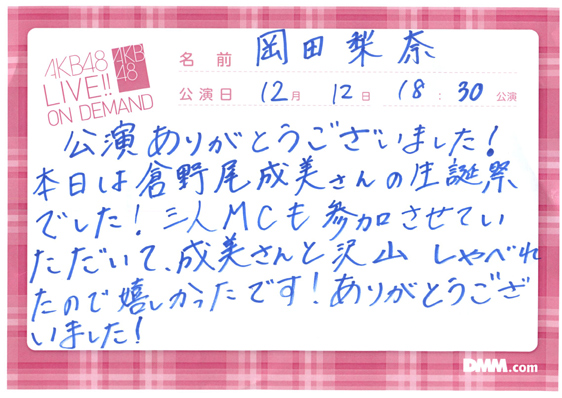 AKB48
LIVE!!
ON DEMAND
AKB
48
名前 岡田梨奈
公演日 12月 12日 18:30 公演
公演ありがとうございました!
本日は倉野尾成美さんの生誕祭
でした!三人MCも参加させてい
ただいて、成美さんと沢山しゃべれ
たので嬉しかったです!ありがとうござ
いました!
DMM.com